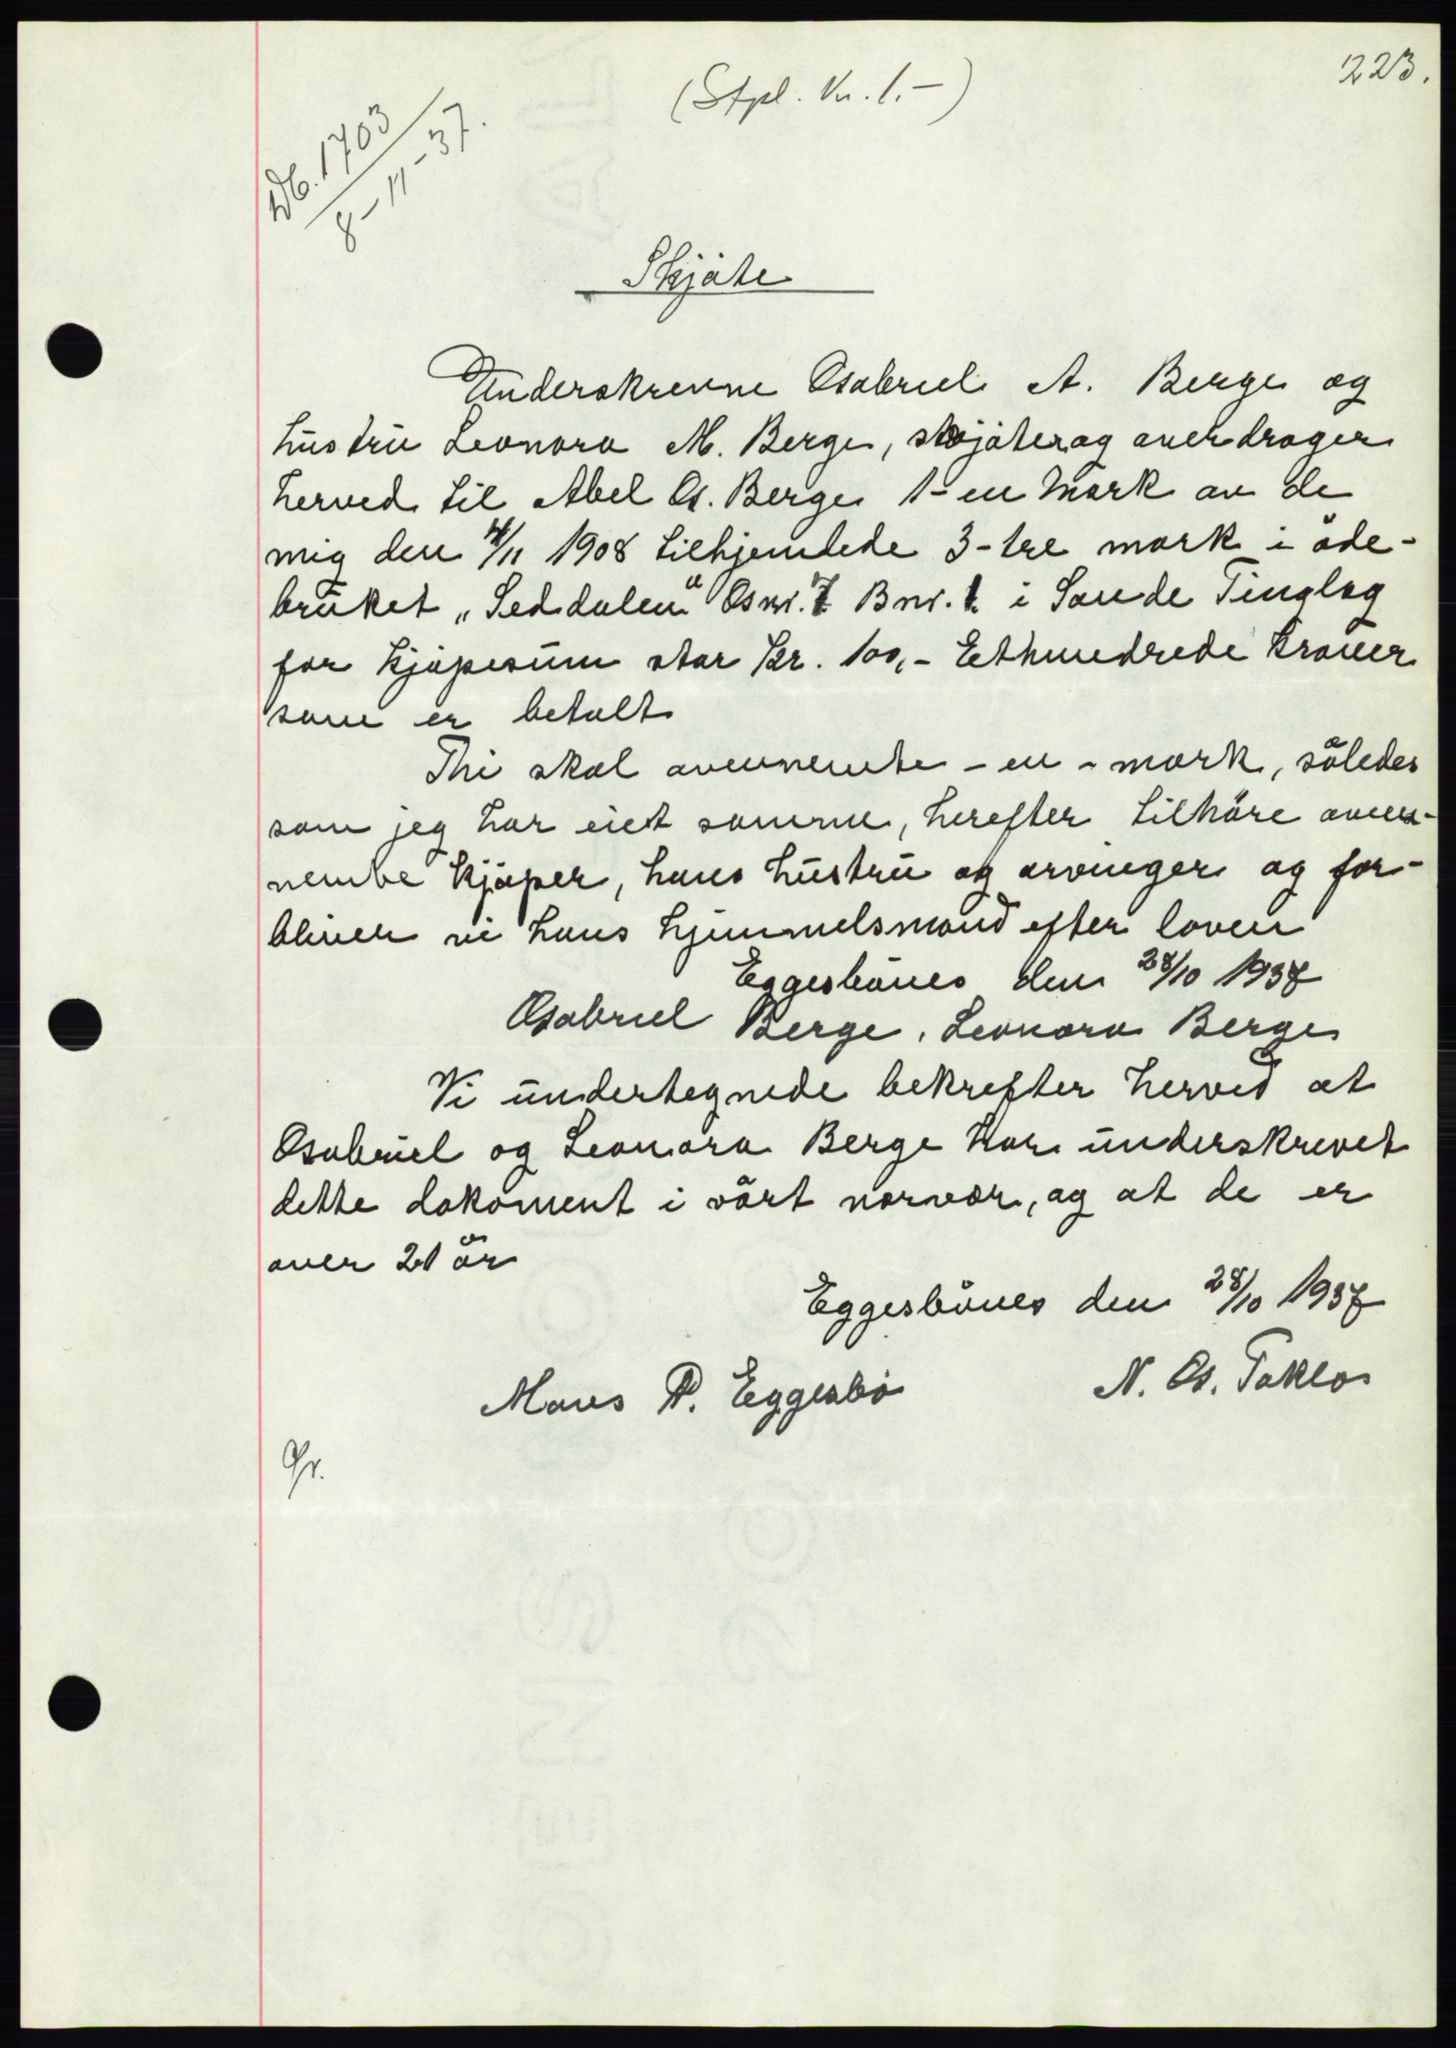 223.
(Stpl. Kr. 1.-)
Db. 1703
8-11-37.
Skjøte
Underskrevne Gabriel A. Berge og
hustru Leonora M. Berge, skjøter og overdrager
herved til Abel G. Berge 1- en mark av de
mig den 4/11 1908 tilhjemlede 3- tre mark i öde-
bruket „Seddalen" Gnr. 7 Bnr. 1. i Sande Tinglag
for kjøpesum stor Kr. 100,- Ethundrede kroner
som er betalt
Thi skal ovennemte - en - mark, således
som jeg har eiet samme, herefter tilhöre oven-
nemte kjøper, hans hustru og arvinger og for-
bliver vi hans hjemmelsmand efter loven
Eggesbönes den 28/10 1937
Gabriel Berge, Leonora Berge
Vi undertegnede bekrefter herved at
Gabriel og Leonora Berge har underskrevet
dette dokoment i vårt nærvær, og at de er
over 21 år
Eggesbönes den 28/10 1937
Mons P. Eggesbö N. G. Taklo
Gr.